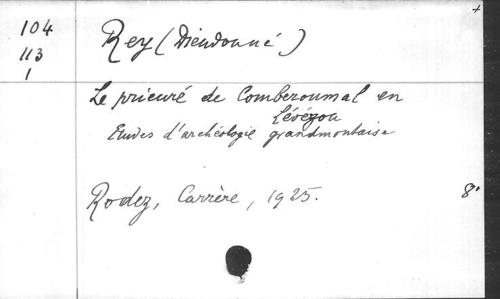 +
104
113
1
Rey (Dieudonné)
Le prieuré de Comberoumal en
Lévézou
Etudes d'archéologie grandmontaise
Rodez, Carrère, 1925.
8°